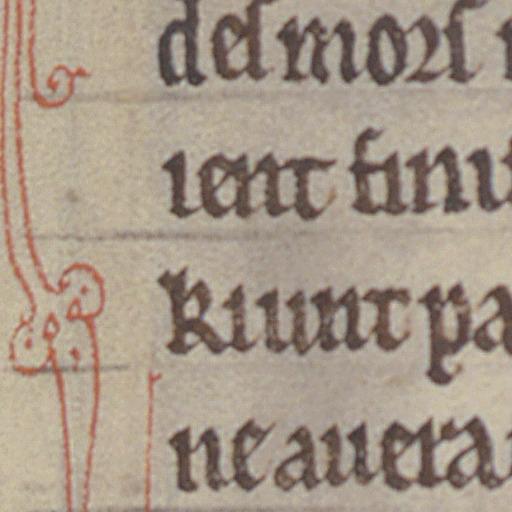 del morſ
ient finu
kiunt pa
ne auera